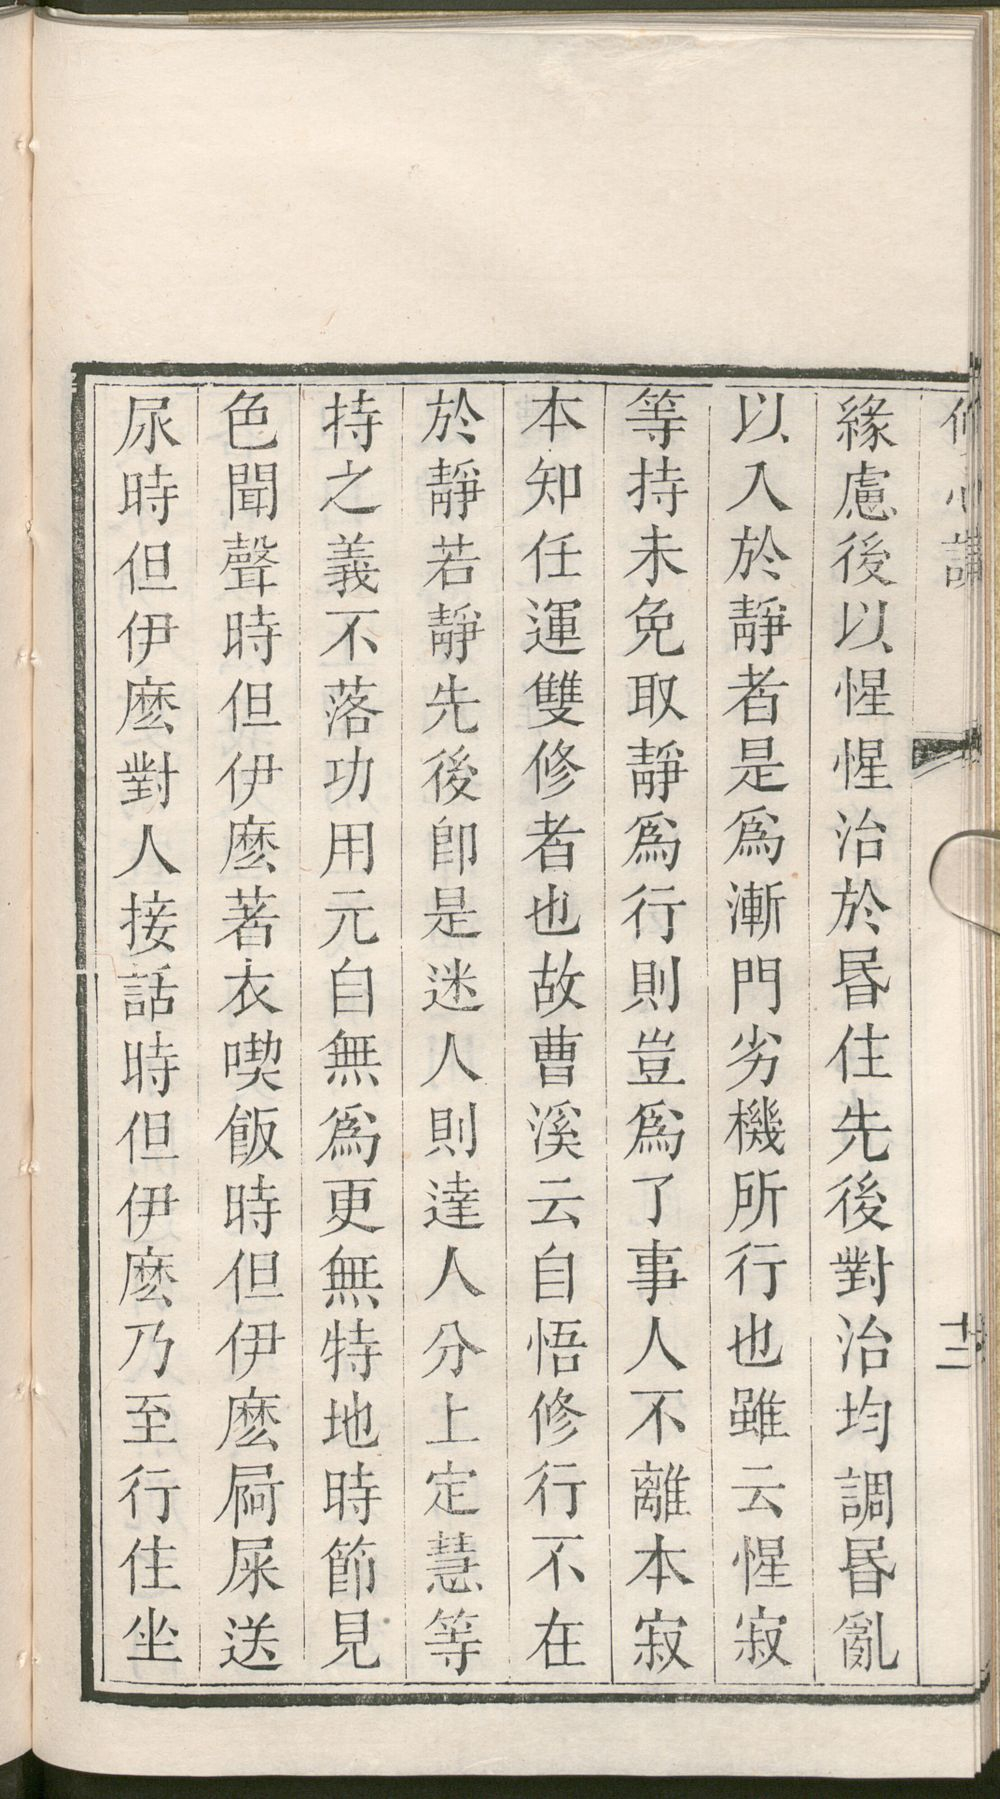 修心訣
十二
緣慮後以惺惺治於昬住先後對治均調昬亂
以入於靜者是爲漸門劣機所行也雖云惺寂
等持未免取靜爲行則豈爲了事人不離本寂
本知任運雙修者也故曹溪云自悟修行不在
於靜若靜先後卽是迷人則達人分上定慧等
持之義不落功用元自無爲更無特地時節見
色聞聲時但伊麽著衣喫飯時但伊麽屙屎送
尿時但伊麽對人接話時但伊麽乃至行住坐